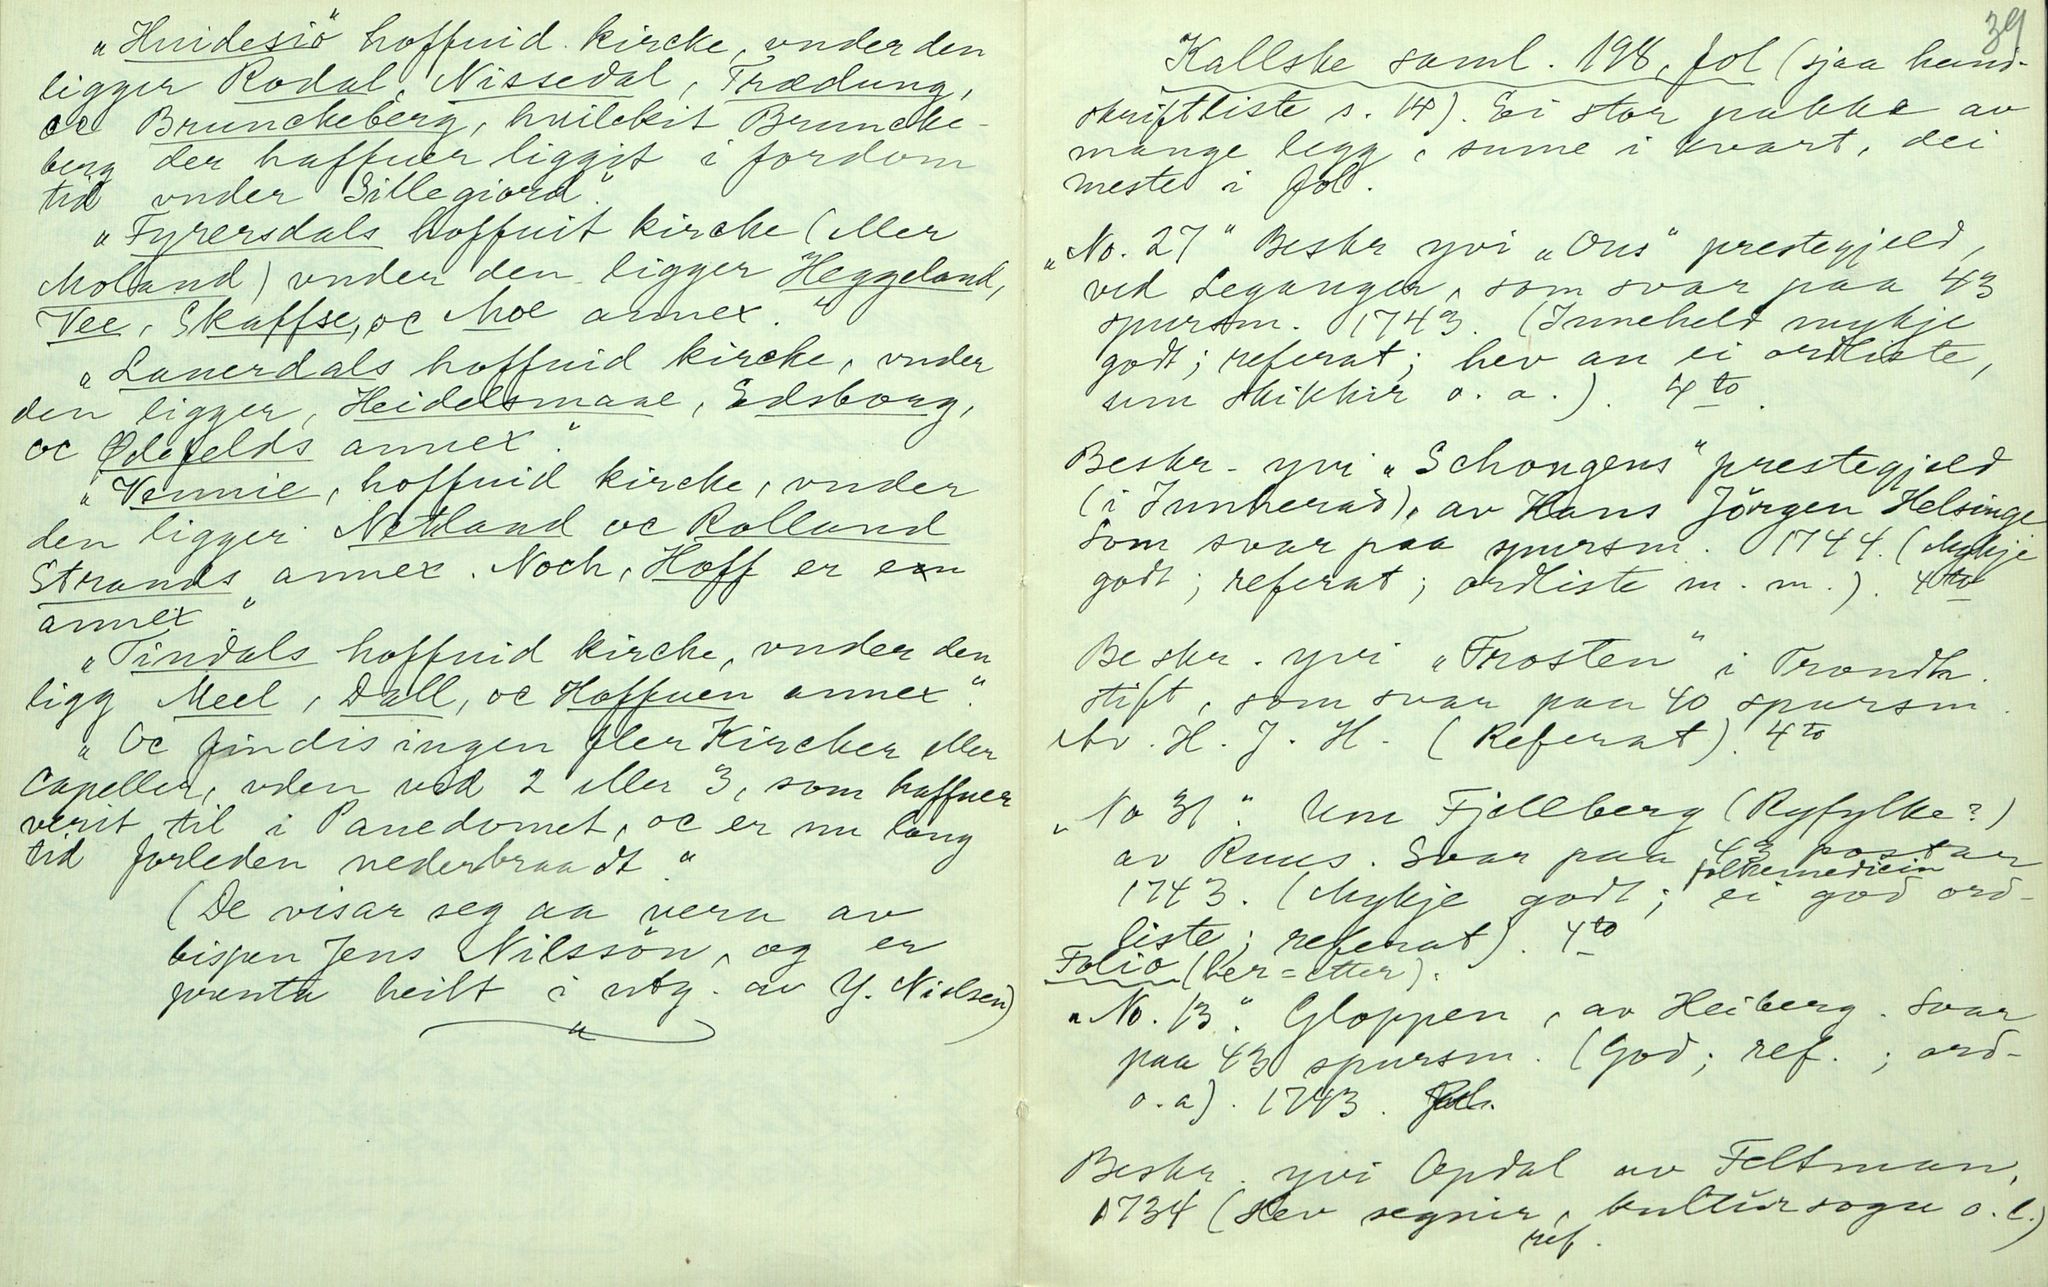 „Huidesiö" hoffuid kircke, vnder den
ligger Rodal, Nissedal, Trædung,
oc Brunckeberg, huilckit Bruncke-
berg der haffuer liggit i fordom
tid vnder Sillegiord".
„Fyrersdals hoffuit kircke (eller
Moland) vnder den ligger Heggeland,
Vee, Skaffse, oc Moe annex."
„Lauerdals hoffuid kircke, vnder
den ligger, Heidelsmaae, Edsborg,
oc Ødefelds annex".
„Vennie, hoffuid kircke, vnder
den ligger Netland oc Rolland
Strands annex. Noch, Hoff er en
annex"
„Tindals hoffuid kircke, vnder den
ligg Meel, Dall, oc Hoffuen annex".
„Oc findis ingen fler Kircker eller
Capeller, vden ved 2 eller 3, som haffuer
verit til i Pauedomet, oc er nu lang
tid forleden nederbraadt."
(De visar seg aa vera av
bispen Jens Nilssön, og er
prenta heilt i utg. av Y. Nielsen)
39
Kallske saml. 198, fol (sjaa hand-
skriftliste s. 14). Ei stor pakke av
mange legg, sume i kvart, dei
meste i fol.
„No. 27" Beskr yvi „Ous" prestegjeld,
ved Leganger, som svar paa 43
spursm. 1743. (Inneheld mykje
godt; referat; hev an ei ordliste,
um skikkir o. a.). 4to.
Beskr. yvi „Schongens" prestegjeld
(i Innherad), av Hans Jörgen Helsinge
Som svar paa spursm. 1744. (Mykje
godt; referat; ordliste m. m.). 4to
Beskr. yvi „Frosten" i Trondh.
stift, som svar paa 40 spursm.
Av. H. J. H. (Referat). 4to
„No 31". Um Fjellberg (Ryfylke?)
av Ruus. Svar paa 43 postar
1743. (Mykje godt; folkemedicin ei god ord-
liste; referat). 4to
Folio (her=etter).
„No. 13". Gloppen, av Heiberg. Svar
paa 43 spursm. (God; ref.; ord-
o. a). 1743.
Beskr. yvi Opdal av Feltman,
1734 (Hev segnir, kultursogu o. l.)
ref.